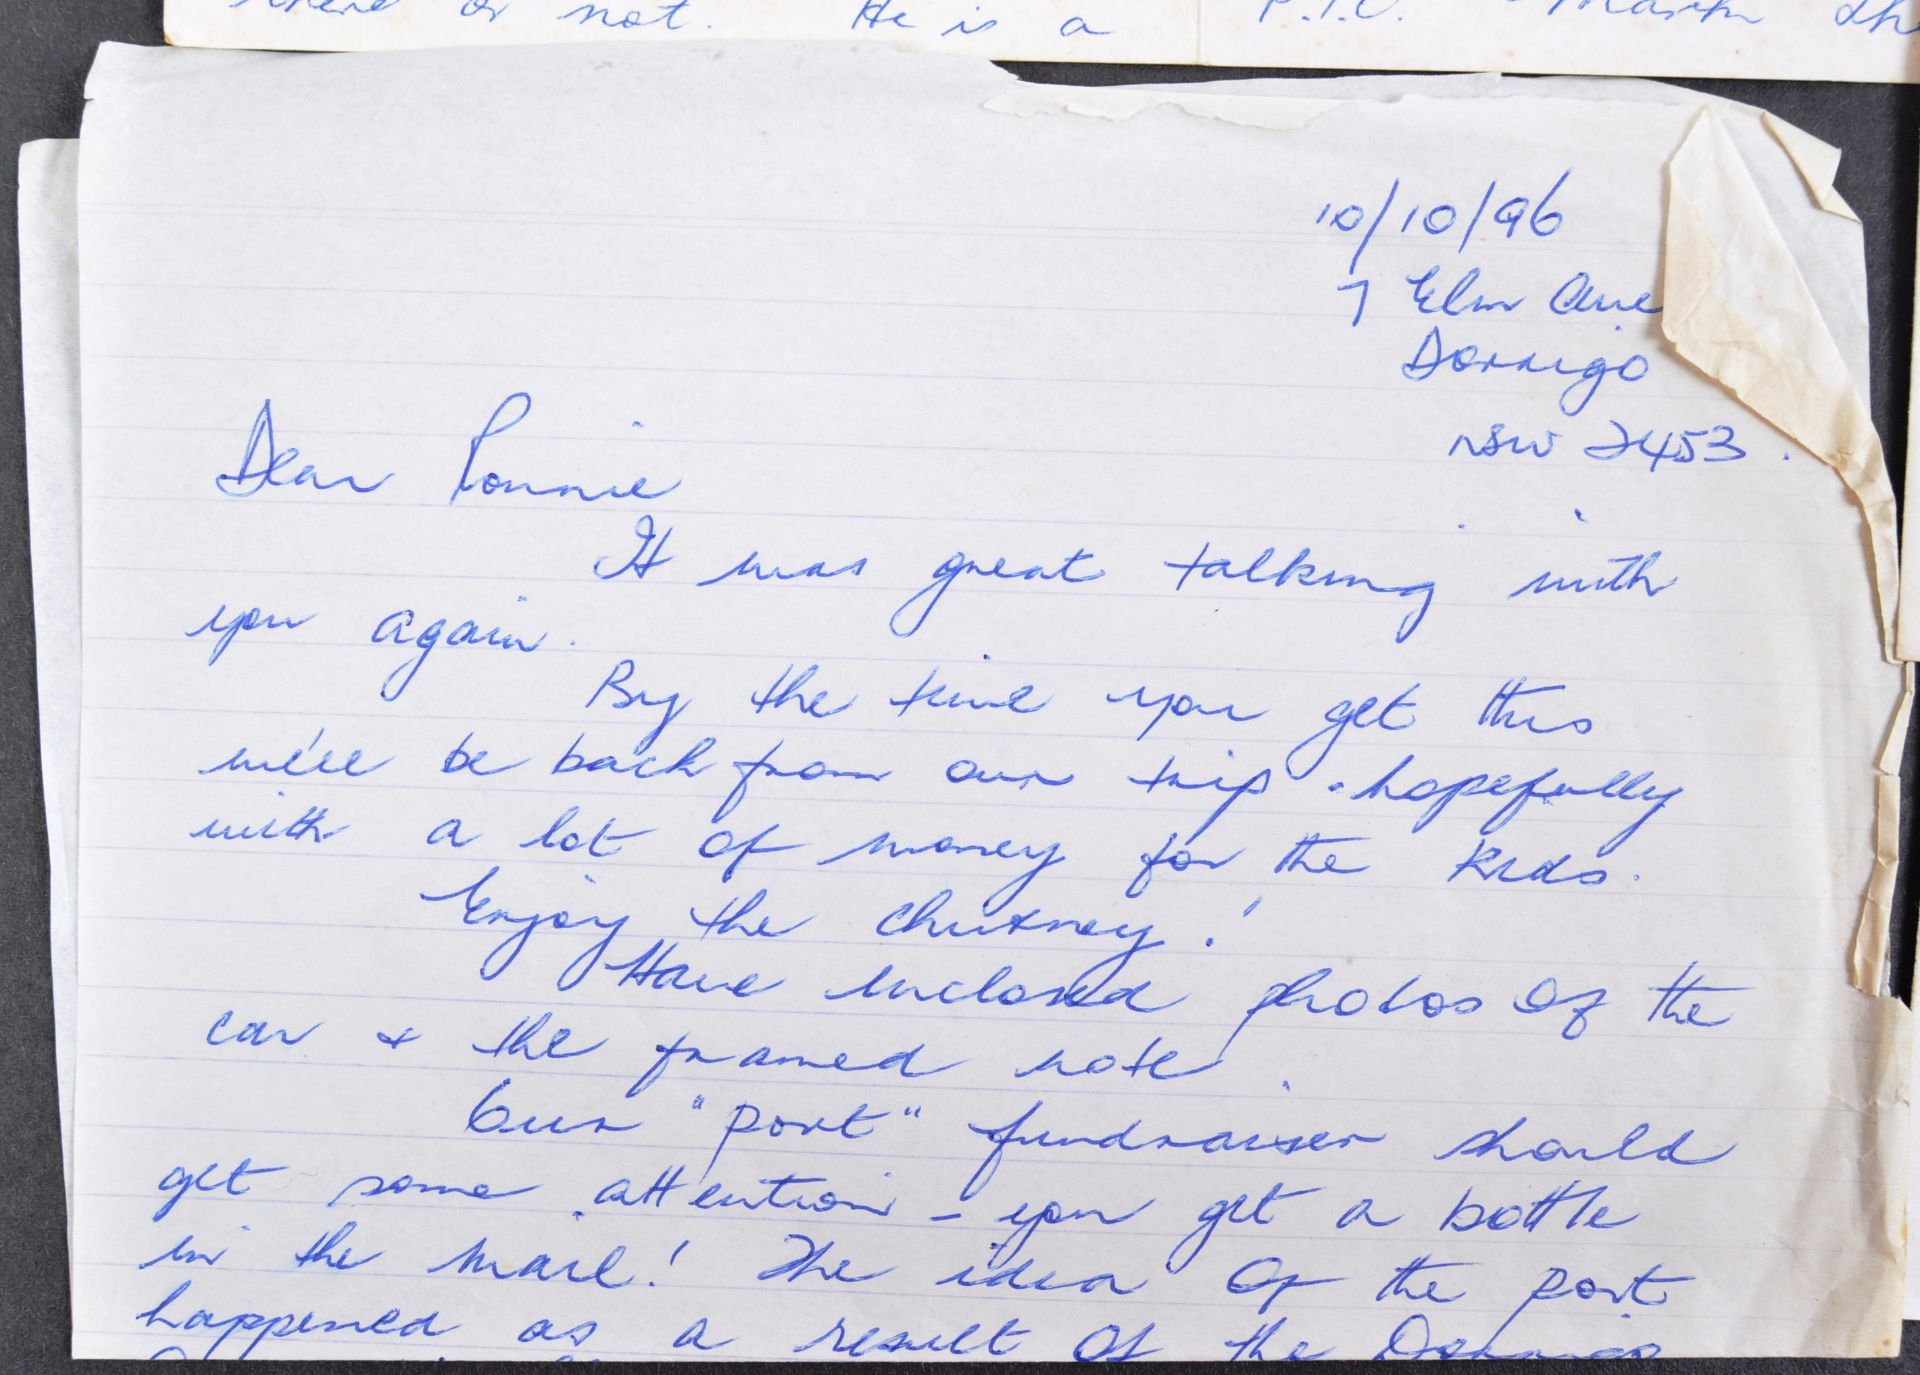 there or not. He is a P.T.O.
10/10/96
7 Elm Ave
Dorrigo
NSW 2453.
Dear Ronnie
It was great talking with
you again.
By the time you get this
we'll be back from our trip - hopefully
with a lot of money for the kids.
Enjoy the chutney!
Have enclosed photos of the
car + the framed note.
Our "port" fundraiser should
get some attention - you get a bottle
in the mail! The idea of the port
happened as a result of the Dorrigo